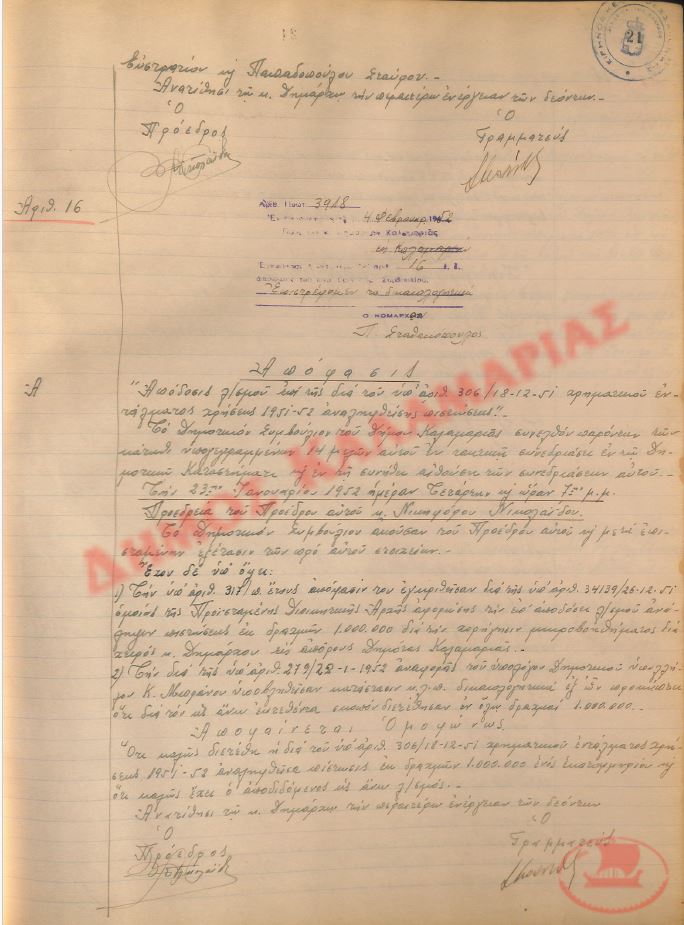 21
Εὐστρατίου κ̀ Παπαδοπούλου Σταύρου.-
Ἀνατίθησι τῷ κ. Δημάρχῳ τὴν περαιτέρω ἐνέργειαν τῶν δεόντων.-
Ὁ Ὁ
Πρόεδρος Γραμματεύς
Ἀριθ. 16
Ἀριθ. Πρωτ. 3918
4 Φεβρουαρ. 1952
Καλαμαριᾶς
16
Ἐπιστρέφομεν τὰ δικαιολογητικά
Ο ΝΟΜΑΡΧΗΣ
Π. Σταθακόπουλος
Ἀπόφασις
Α
"Ἀπόδοσις λ/σμοῦ ἐπὶ τῆς διὰ τοῦ ὑπ' ἀριθ. 306/18-12-51 χρηματικοῦ ἐν-
τάλματος χρήσεως 1951-52 ἀναληφθείσης πιστώσεως".-
Τὸ Δημοτικὸν Συμβούλιον τοῦ Δήμου Καλαμαριᾶς συνελθὸν παρόντων τῶν
κάτωθι ὑπογεγραμμένων 14 μελῶν αὐτοῦ ἐν τακτικῇ συνεδριάσει ἐν τῷ Δη-
μοτικῷ Καταστήματι κ̀ ἐν τῇ συνήθει αἰθούσῃ τῶν συνεδριάσεων αὐτοῦ.-
Τὴν 23ην Ἰανουαρίου 1952 ἡμέραν Τετάρτην κ̀ ὥραν 7ην μ.μ.
Προεδρείᾳ τοῦ Προέδρου αὐτοῦ κ. Νικηφόρου Νικολαΐδου.
Τὸ Δημοτικὸν Συμβούλιον ἀκοῦσαν τοῦ Προέδρου αὐτοῦ κ̀ μετὰ ἐπι-
σταμένην ἐξέτασιν τῶν πρὸ αὐτοῦ στοιχείων.-
Ἔχον δὲ ὑπ' ὄψει:
1) Τὴν ὑπ' ἀριθ. 317/π. ἔτους ἀπόφασίν του ἐγκριθεῖσαν διὰ τῆς ὑπ' ἀριθ. 34139/26-12-51
ὁμοίας τῆς Προϊσταμένης Διοικητικῆς Ἀρχῆς ἀφορώσης τὴν ἐπ' ἀποδόσει λ/σμοῦ ἀνά-
ληψιν πιστώσεως ἐκ δραχμῶν 1.000.000 διὰ τὴν χορήγησιν μικροβοηθήματος διὰ
χειρὸς κ. Δημάρχου εἰς ἀπόρους Δημότας Καλαμαριᾶς.-
2) Τὴν διὰ τῆς ὑπ' ἀριθ. 279/22-1-1952 ἀναφορᾶς τοῦ ὑπολόγου Δημοτικοῦ ὑπαλλή-
λου Κ. ὑποβληθεῖσαν κατάστασιν κ.λ.π. δικαιολογητικὰ ἐξ ὧν προκύπτει
ὅτι διὰ τὸν ὡς ἄνω ἐκτεθέντα σκοπὸν διετέθησαν ἐν ὅλῳ δραχμαὶ 1.000.000.-
Ἀποφαίνεται Ὁμοφώνως
Ὅτι καλῶς διετέθη ἡ διὰ τοῦ ὑπ' ἀριθ. 306/18-12-51 χρηματικοῦ ἐντάλματος χρή-
σεως 1951-52 ἀναληφθεῖσα πίστωσις ἐκ δραχμῶν 1.000.000 ἑνὸς ἑκατομμυρίου κ̀
ὅτι καλῶς ἔχει ὁ ἀποδιδόμενος ὡς ἄνω λ/σμός.-
Ἀνατίθησι τῷ κ. Δημάρχῳ τὴν περαιτέρω ἐνέργειαν τῶν δεόντων
Ὁ Ὁ
Πρόεδρος Γραμματεύς
ΔΗΜΟΣ ΚΑΛΑΜΑΡΙΑΣ